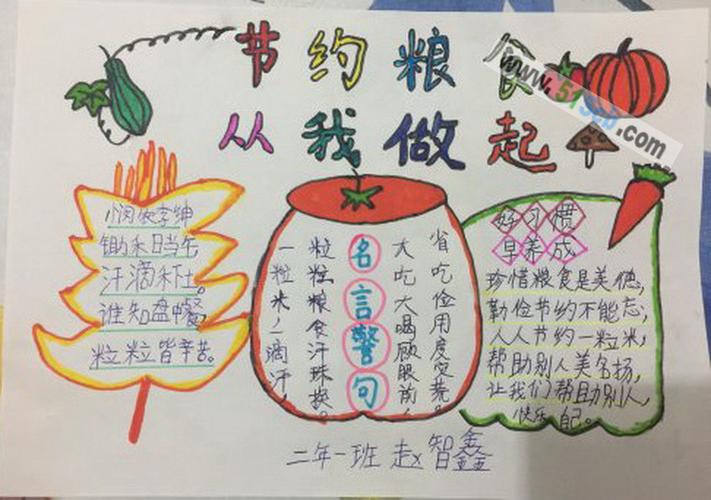 节约粮食
从我做起
悯农李绅
锄禾日当午
汗滴禾下土。
谁知盘中餐,
粒粒皆辛苦。
名言警句
一粒米一滴汗,
粒粒粮食汗珠换。
大吃大喝顾眼前,
省吃俭用度灾荒。
好习惯
早养成
珍惜粮食是美德,
勤俭节约不能忘,
人人节约一粒米,
帮助别人美名扬,
让我们帮助别人,
快乐自己。
二年一班 赵智鑫